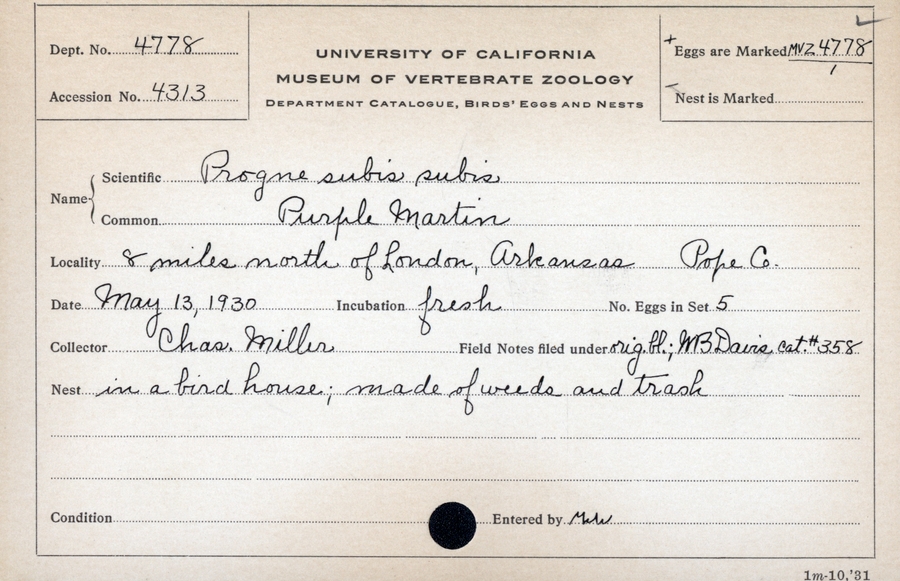 Dept. No. 4778
Accession No. 4313
UNIVERSITY OF CALIFORNIA
MUSEUM OF VERTEBRATE ZOOLOGY
DEPARTMENT CATALOGUE, BIRDS' EGGS AND NESTS
+ Eggs are Marked MVZ 4778
1
Nest is Marked
Name
Scientific Progne subis subis
Common Purple Martin
Locality 8 miles north of London, Arkansas Pope Co.
Date May 13, 1930 Incubation fresh No. Eggs in Set 5
Collector Chas. Miller Field Notes filed under orig. bl.; WB Davis cat. #358
Nest in a bird house; made of weeds and trash
Condition Entered by
1m-10,'31